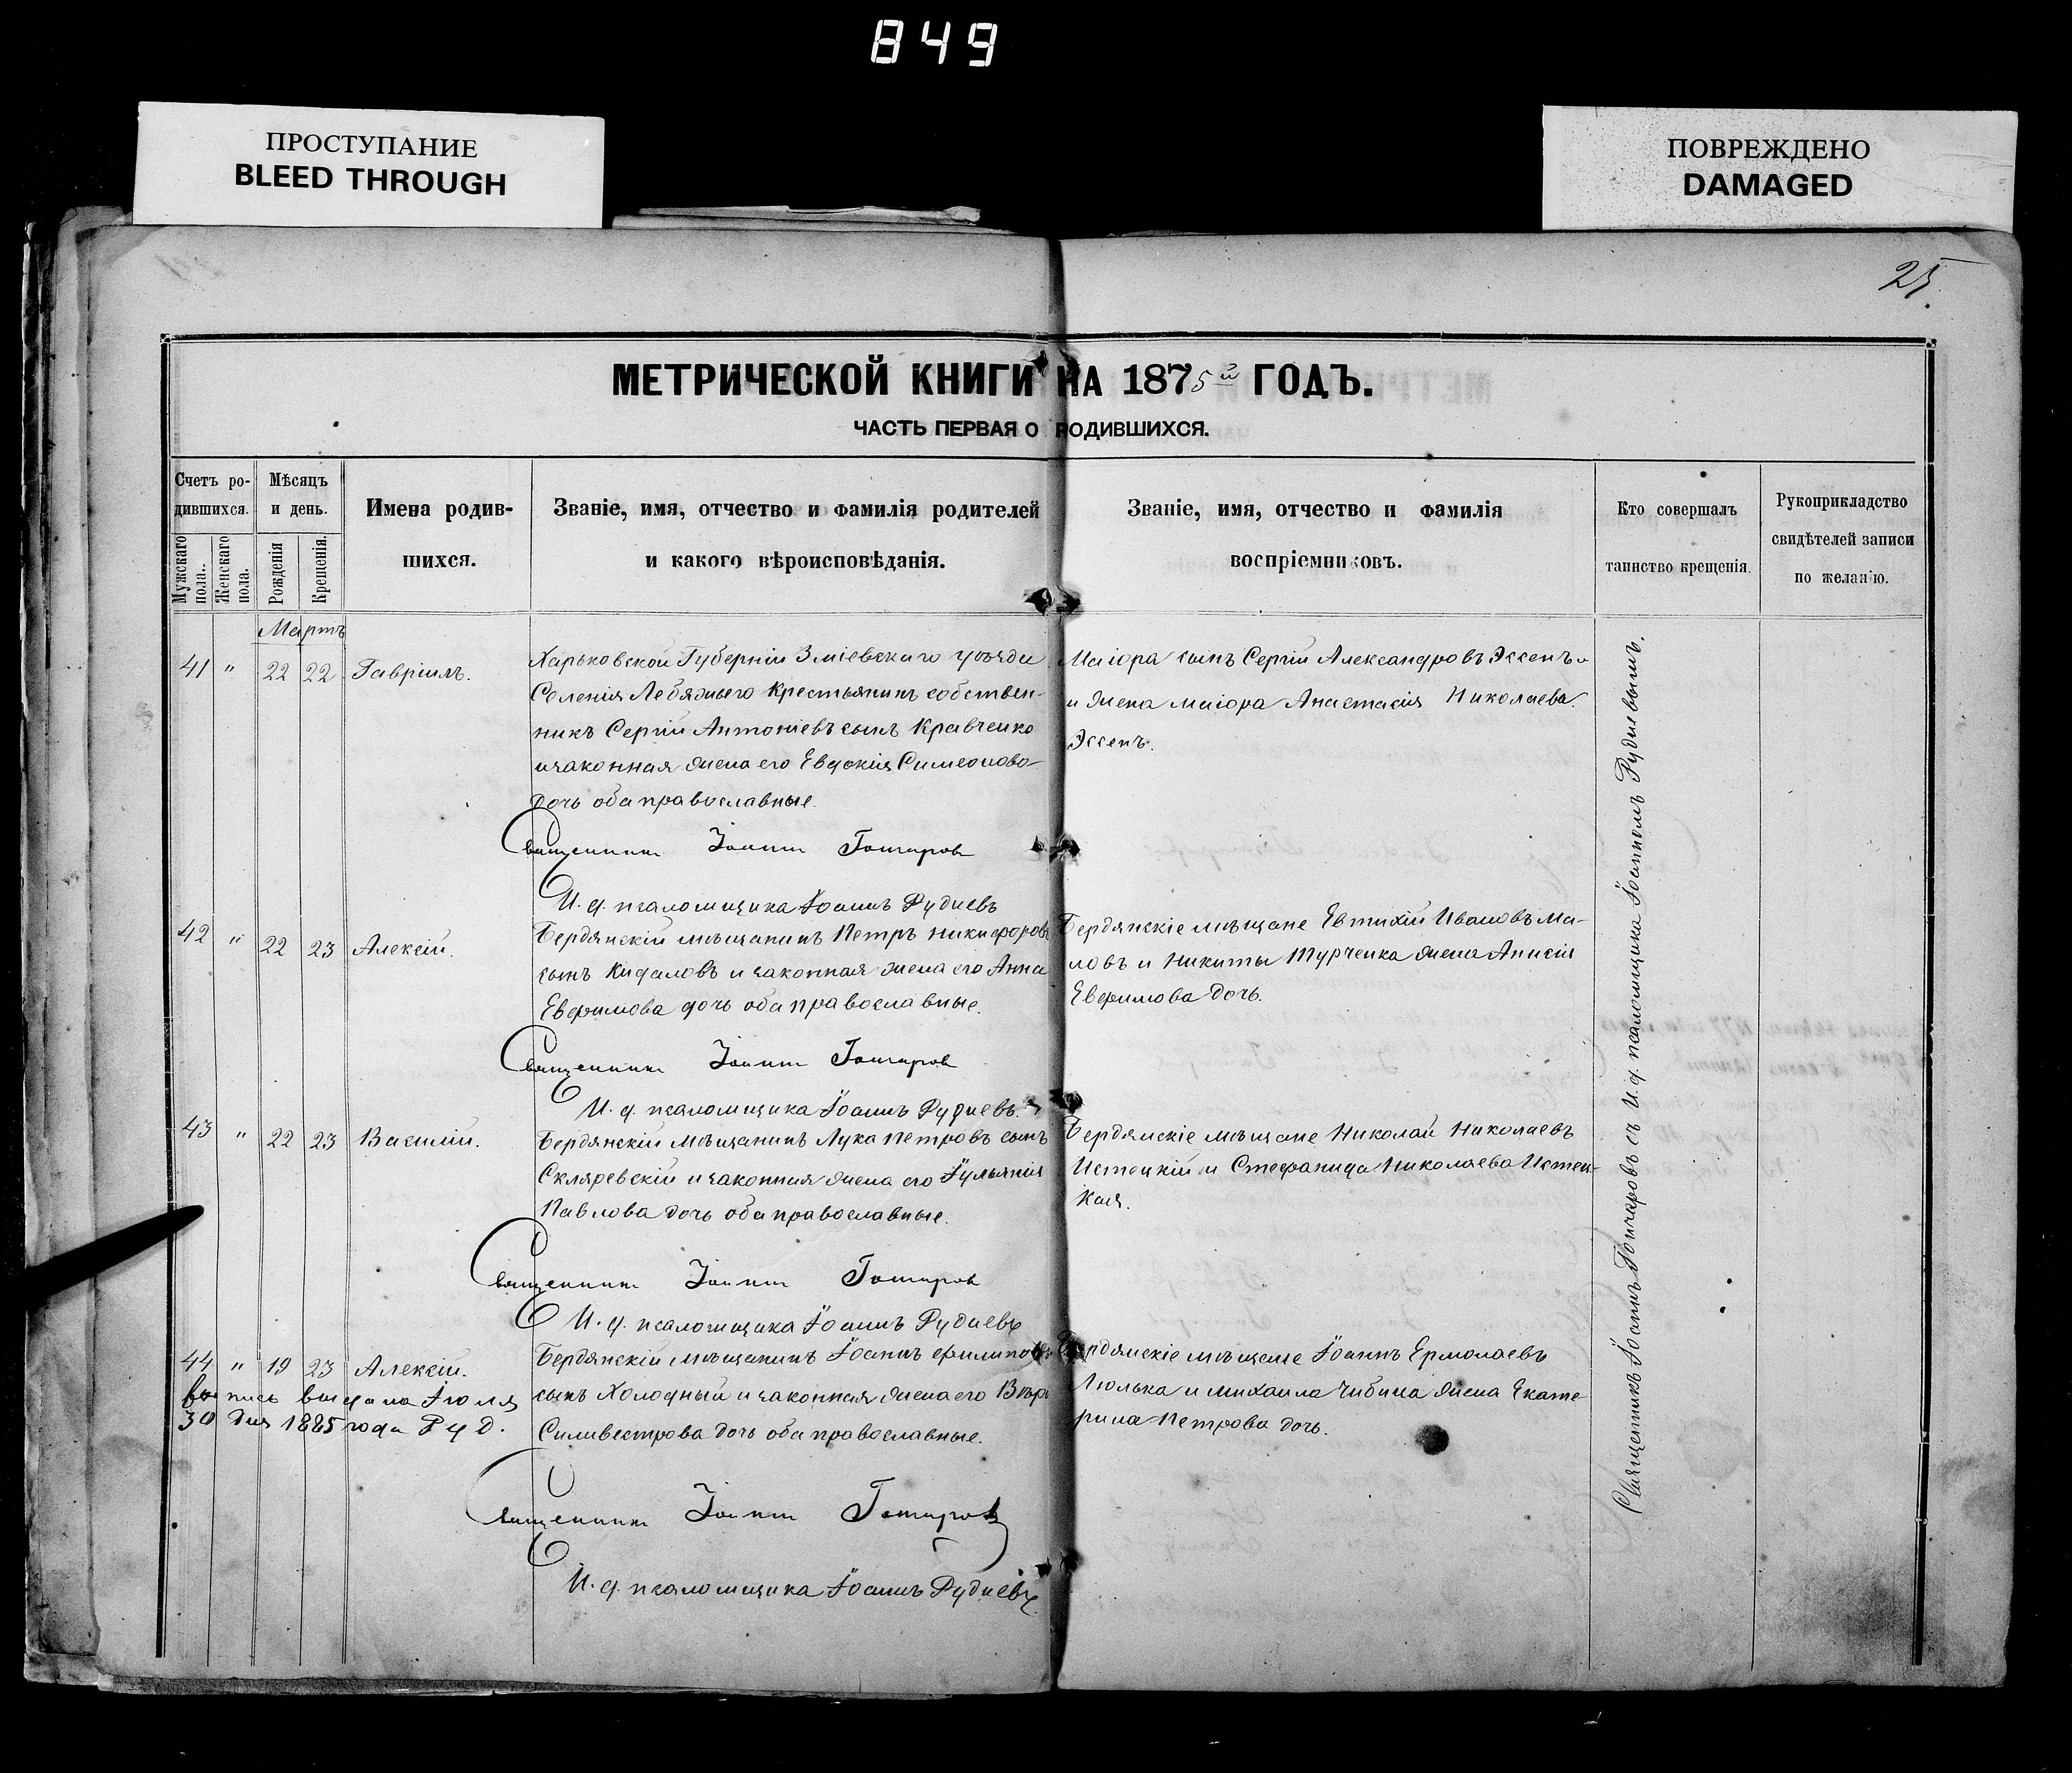 849
ПРОСТУПАНИЕ
BLEED THROUGH
ПОВРЕЖДЕНО
DAMAGED
25
МЕТРИЧЕСКОЙ КНИГИ НА 1875й ГОДЪ.
ЧАСТЬ ПЕРВАЯ О РОДИВШИХСЯ.
Счетъ ро-
дившихся.
Мужскаго пола.
Женскаго пола.
Мѣсяцъ
и день.
Рожденія
Крещенія.
Имена родив-
шихся.
Званіе, имя, отчество и фамилія родителей
и какого вѣроисповѣданія.
Званіе, имя, отчество и фамилія
воспріемниковъ.
Кто совершалъ
таинство крещенія.
Рукоприкладство
свидѣтелей записи
по желанію.
Мартъ
41 " 22 22 Гавріилъ.
Харьковской Губерніи Зміевскаго уѣзда
Селенія Лебяжьего крестьянинъ собствен-
никъ Сергій Антоніевъ сынъ Кравченко
и законная жена его Евдокія Симеонова
дочь оба православные.
Маіора сынъ Сергій Александровъ Эссенъ
и жена маіора Анастасія Николаева
Эссенъ.
Священникъ Іоаннъ Гончаровъ
И. д. псаломщика Іоаннъ Рудневъ
42 " 22 23 Алексій.
Бердянскій мѣщанинъ Петръ Никифоровъ
сынъ Кидаловъ и законная жена его Анна
Евфимова дочь оба православные.
Бердянскіе мѣщане Евтихій Ивановъ Ма-
ловъ и Никиты Турченка жена Анисія
Евфимова дочь.
Священникъ Іоаннъ Гончаровъ
И. д. псаломщика Іоаннъ Рудневъ.
43 " 22 23 Василій.
Бердянскій мѣщанинъ Лука Петровъ сынъ
Скляревскій и законная жена его Іульянія
Павлова дочь оба православные.
Бердянскіе мѣщане Николай Николаевъ
Истоцкій и Стефанида Николаева Истец-
кая.
Священникъ Іоаннъ Гончаровъ
И. д. псаломщика Іоаннъ Рудневъ
44 " 19 23 Алексій.
выпись выдана Іюля
30 дня 1885 года Руд.
Бердянскій мѣщанинъ Іоаннъ Филиповъ
сынъ Холодный и законная жена его Вѣра
Силивестрова дочь оба православные.
Бердянскіе мѣщане Іоаннъ Ермолаевъ
Люлька и Михаила Чибина жена Екате-
рина Петрова дочь.
Священникъ Іоаннъ Гончаровъ
И. д. псаломщика Іоаннъ Рудневъ.
Священникъ Іоаннъ Гончаровъ съ И. д. псаломщика Іоанномъ Рудневымъ.